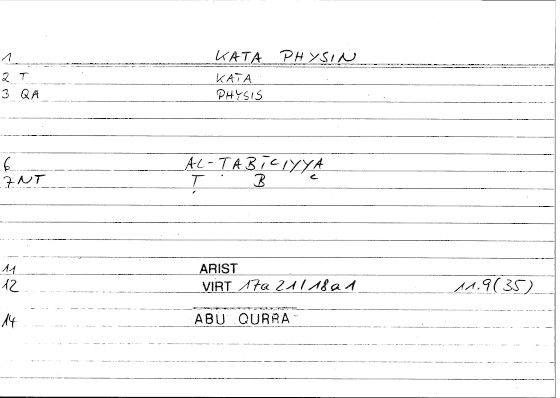 1 KATA PHYSIN
2 T KATA
3 QA PHYSIS
6 AL-ṬABĪCIYYA
7 NT Ṭ B C
11 ARIST
12 VIRT 17a21/18a1 11.9(35)
14 ABU QURRA